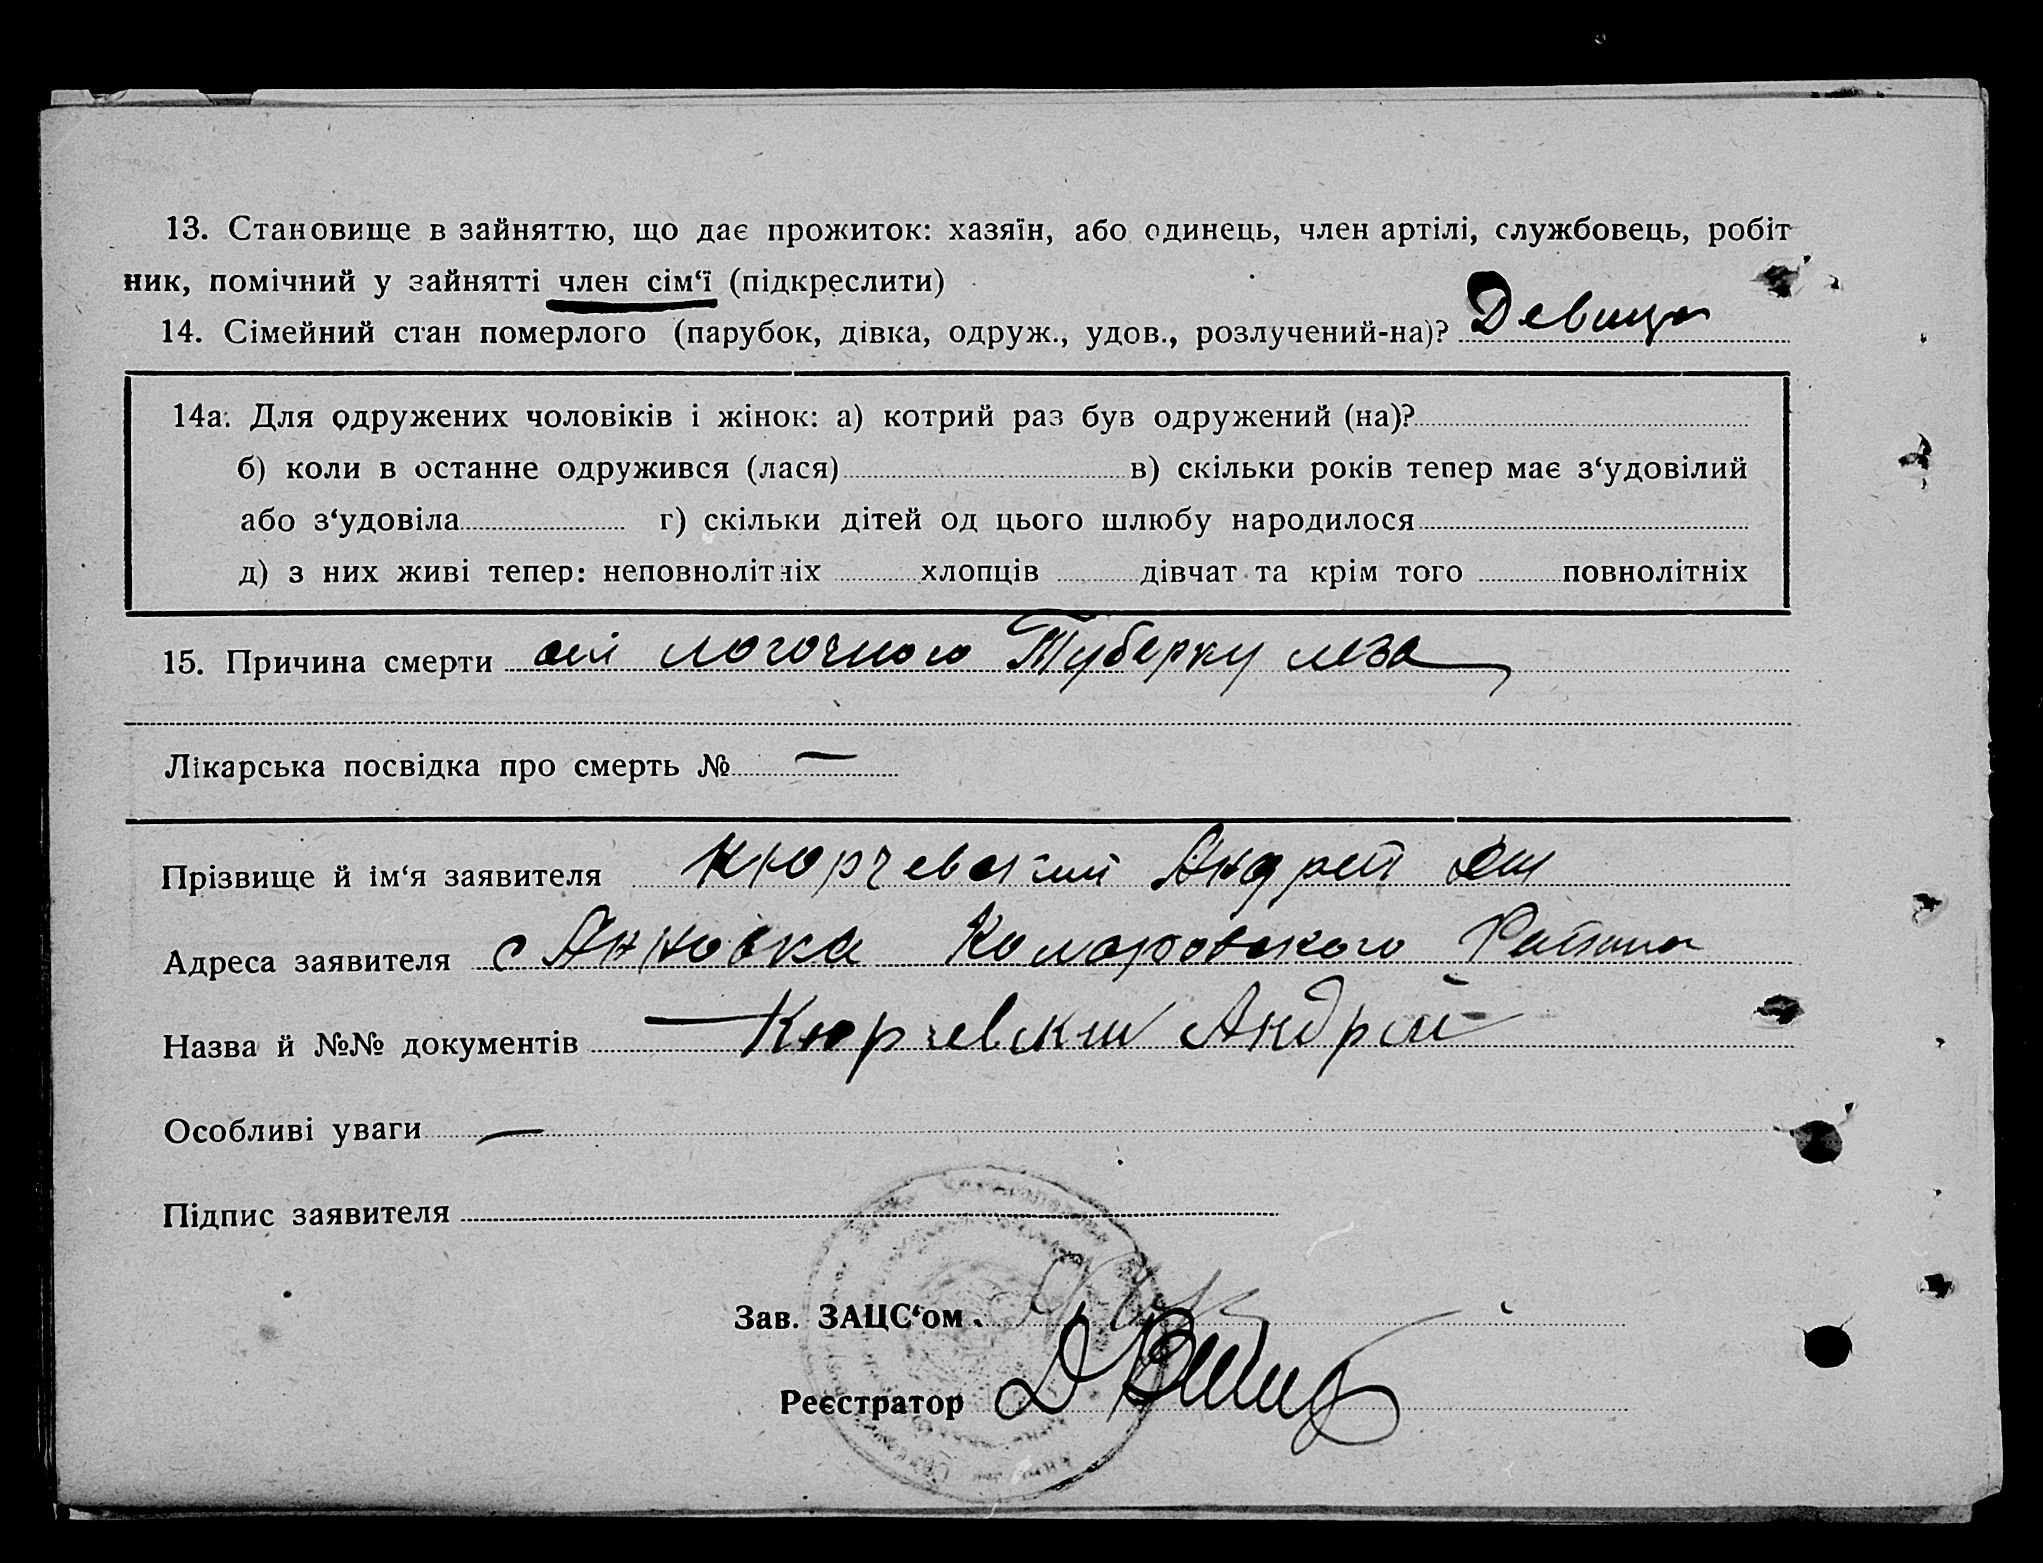 13. Становище в зайняттю, що дає прожиток: хазяїн, або одинець, член артілі, службовець, робіт
ник, помічний у зайнятті член сім‘ї (підкреслити)
14. Сімейний стан померлого (парубок, дівка, одруж., удов., розлучений-на)? Девица
14а. Для одружених чоловіків і жінок: а) котрий раз був одружений (на)?
б) коли в останне одружився (лася) в) скільки років тепер має з‘удовілий
або з‘удовіла г) скільки дітей од цього шлюбу народилося
д) з них живі тепер: неповнолітніх хлопців дівчат та крім того повнолітніх
15. Причина смерти от логочного Туберкулеза
Лікарська посвідка про смерть № —
Прізвище й ім‘я заявителя Кюрчевский Андрей
Адреса заявителя с Анновка Комаровского Района
Назва й №№ документів — Кюрчевский Андрей
Особливі уваги —
Підпис заявителя
Зав. ЗАЦС‘ом
Реєстратор